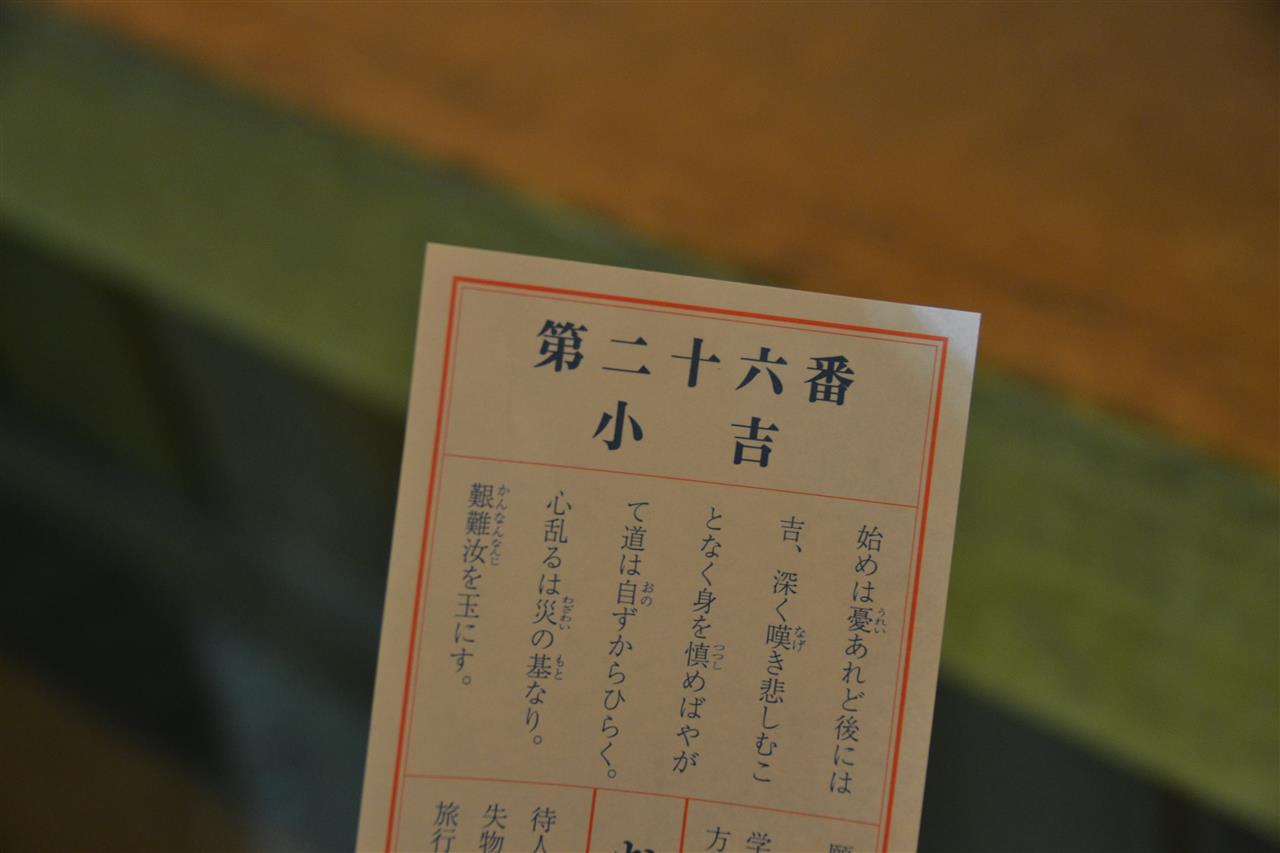 第二十六番
小吉
始めは憂あれど後には
吉、深く嘆き悲しむこ
となく身を慎めばやが
て道は自ずからひらく。
心乱るは災の基なり。
艱難汝を玉にす。
願
学業
方
待人
失物
旅行